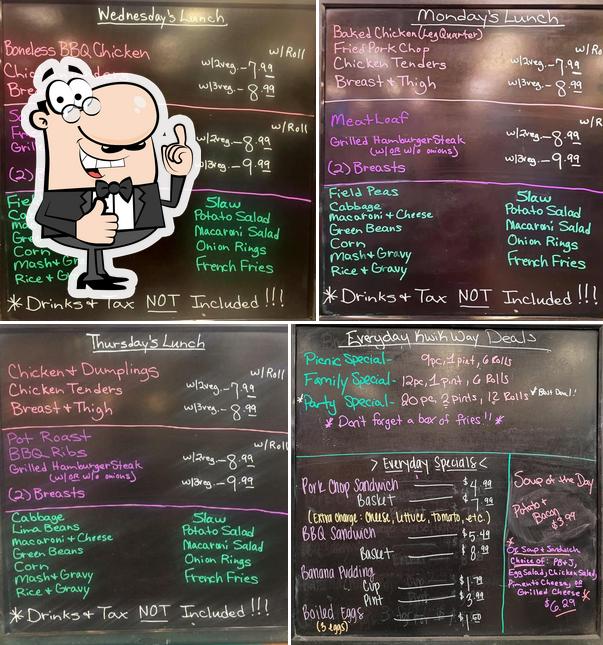 Wednesday's Lunch
Boneless BBQ Chicken w/Roll
w/2veg.-7.99
w/3veg.-8.99
w/Roll
w/2veg.-8.99
w/3veg.-9.99
(2)
Corn
Mash & Gr
Rice &
Slaw
Potato Salad
Macaroni Salad
Onion Rings
French Fries
* Drinks & Tax NOT Included!!!
Monday's Lunch
Baked Chicken (Leg Quarter)
Fried Pork Chop
Chicken Tenders w/2veg.-7.99
Breast & Thigh w/3veg.-8.99
Meatloaf
Grilled Hamburger Steak w/2veg.-8.99
(w/ OR w/o onions)
(2) Breasts w/3veg.-9.99
Field Peas
Cabbage
Macaroni & Cheese
Green Beans
Corn
Mash & Gravy
Rice & Gravy
Slaw
Potato Salad
Macaroni Salad
Onion Rings
French Fries
* Drinks & Tax NOT Included!!!
Thursday's Lunch
w/Roll
Chicken & Dumplings
Chicken Tenders w/2veg.-7.99
Breast & Thigh w/3veg.-8.99
w/Roll
Pot Roast
BBQ Ribs w/2veg.-8.99
Grilled Hamburger Steak
(w/ OR w/o onions) w/3veg.-9.99
(2) Breasts
Cabbage
Lima Beans
Macaroni & Cheese
Green Beans
Corn
Mash & Gravy
Rice & Gravy
Slaw
Potato Salad
Macaroni Salad
Onion Rings
French Fries
* Drinks & Tax NOT Included!!!
Everyday Kwik Way Deals
Picnic Special- 9pc, 1 pint, 6 Rolls
Family Special- 12pc, 1 pint, 6 Rolls
*Party Special- 20 pc, 2 pints, 12 Rolls *Best Deal!
* Don't forget a box of fries!! *
> Everyday Specials <
Pork Chop Sandwich $4.99
Basket
(Extra charge: Cheese, lettuce, tomato, etc.)
BBQ Sandwich $5.49
Basket $8.99
Banana Pudding
Cup $1.79
Pint $3.99
Boiled Eggs $1.50
(3 eggs)
Soup of the Day
Potato &
Bacon
$3.99
*
Or Soup & Sandwich
Choice of: PB&J,
Egg Salad, Chicken Salad,
Pimento Cheese, OR
Grilled Cheese *
$6.29